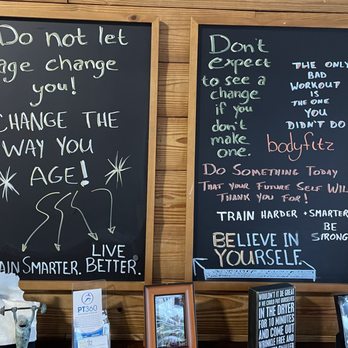 Do not let
age change
you!
CHANGE THE
WAY YOU
AGE!
TRAIN SMARTER. LIVE
BETTER.
Don't
expect
to see a
change
if you
don't
make
one.
THE ONLY
BAD
WORKOUT
IS
THE ONE
YOU
DIDN'T DO
bodyfitz
DO SOMETHING TODAY
THAT YOUR FUTURE SELF WILL
THANK YOU FOR!
TRAIN HARDER + SMARTER
BE
STRONG
BELIEVE IN
YOURSELF.
PT360
WOULDN'T IT BE GREAT
IF WE COULD PUT OURSELVES
IN THE DRYER
FOR 10 MINUTES
AND COME OUT
WRINKLE FREE AND